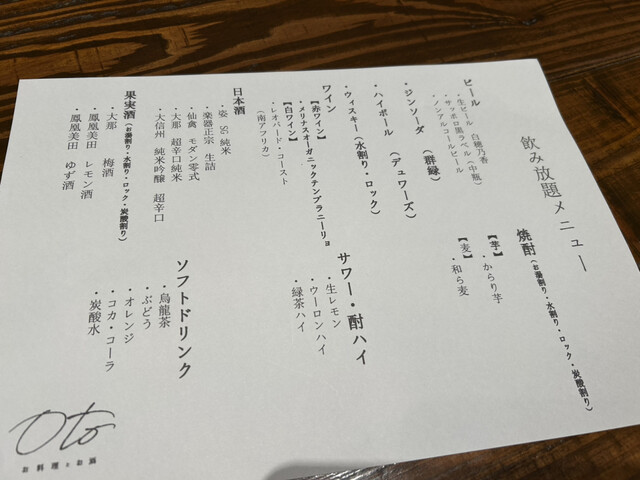 飲み放題メニュー
ビール
・生ビール 白穂乃香
・サッポロ黒ラベル（中瓶）
・ノンアルコールビール
・ジンソーダ（群緑）
・ハイボール（デュワーズ）
・ウィスキー（水割り・ロック）
ワイン
【赤ワイン】
・メリナスオーガニックテンプラニーリョ
【白ワイン】
・レオパード・コースト
（南アフリカ）
日本酒
・姿 SG 純米
・楽器正宗 生詰
・仙禽 モダン零式
・大那 超辛口純米
・大信州 純米吟醸 超辛口
果実酒（お湯割り・水割り・ロック・炭酸割り）
・大那 梅酒
・鳳凰美田 レモン酒
・鳳凰美田 ゆず酒
焼酎（お湯割り・水割り・ロック・炭酸割り）
【芋】
・からり芋
【麦】
・和ら麦
サワー・酎ハイ
・生レモン
・ウーロンハイ
・緑茶ハイ
ソフトドリンク
・烏龍茶
・ぶどう
・オレンジ
・コカ・コーラ
・炭酸水
Oto
お料理とお酒